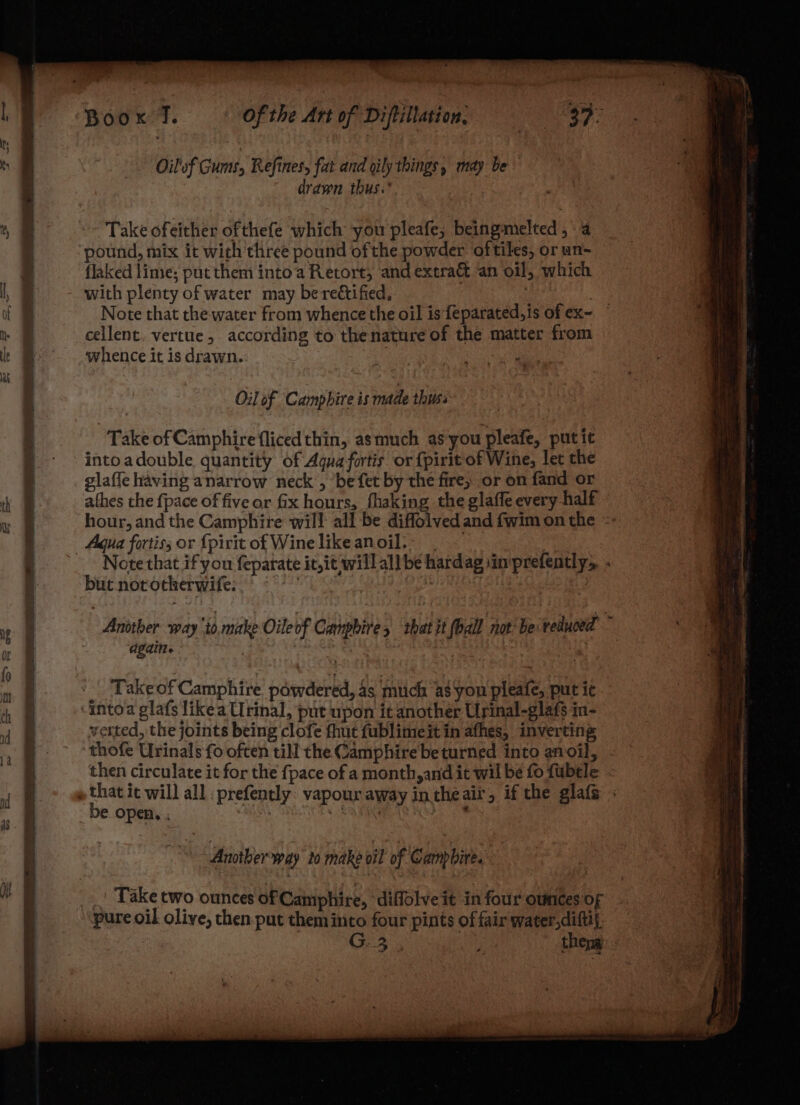 Book I. Of the Art of Diſtillation. 37
Oil of Gums, Reſines, fat and oily things, may be
drawn thus.
Take of either of theſe which you pleaſe, being melted, a
pound, mix it with three pound of the powder of tiles, or un-
ſlaked lime; put them into a Retort, and extract an oil, which
with plenty of water may be rectified,
Note that the water from whence the oil is ſeparated, is of ex-
cellent vertue, according to the nature of the matter from
whence it is drawn.
Oil of Camphire is made thus.
Take of Camphire ſliced thin, as much as you pleaſe, put it
into a double quantity of Aqua fortis or ſpirit of Wine, let the
glaſſe having a narrow neck, be ſet by the fire, or on ſand or
aſhes the ſpace of five or ſix hours, ſhaking the glaſſe every half
hour, and the Camphire will all be diſſolved and ſwim on the
Aqua fortis, or ſpirit of Wine like an oil.
Note that if you ſeparate it, it will all be hard again preſently,
but not otherwiſe.
Another way to make Oile of Camphire, that it ſhall not be reduced
againe
Take of Camphire powdered, as much as you pleaſe, put it
into a glaſs like a Urinal, put upon it another Urinal-glaſs in-
verted, the joints being cloſe ſhut ſublime it in aſhes, inverting
thoſe Urinals ſo often till the Camphire be turned into an oil,
then circulate it for the ſpace of a month, and it wil be ſo ſubtle
that it will all preſently vapour away in the air, if the glaſs
be open.
Another way to make oil of Camphire.
Take two ounces of Camphire, diſſolve it in four ounces of
pure oil olive, then put them into four pints of fair water, diſtil
G 3 them